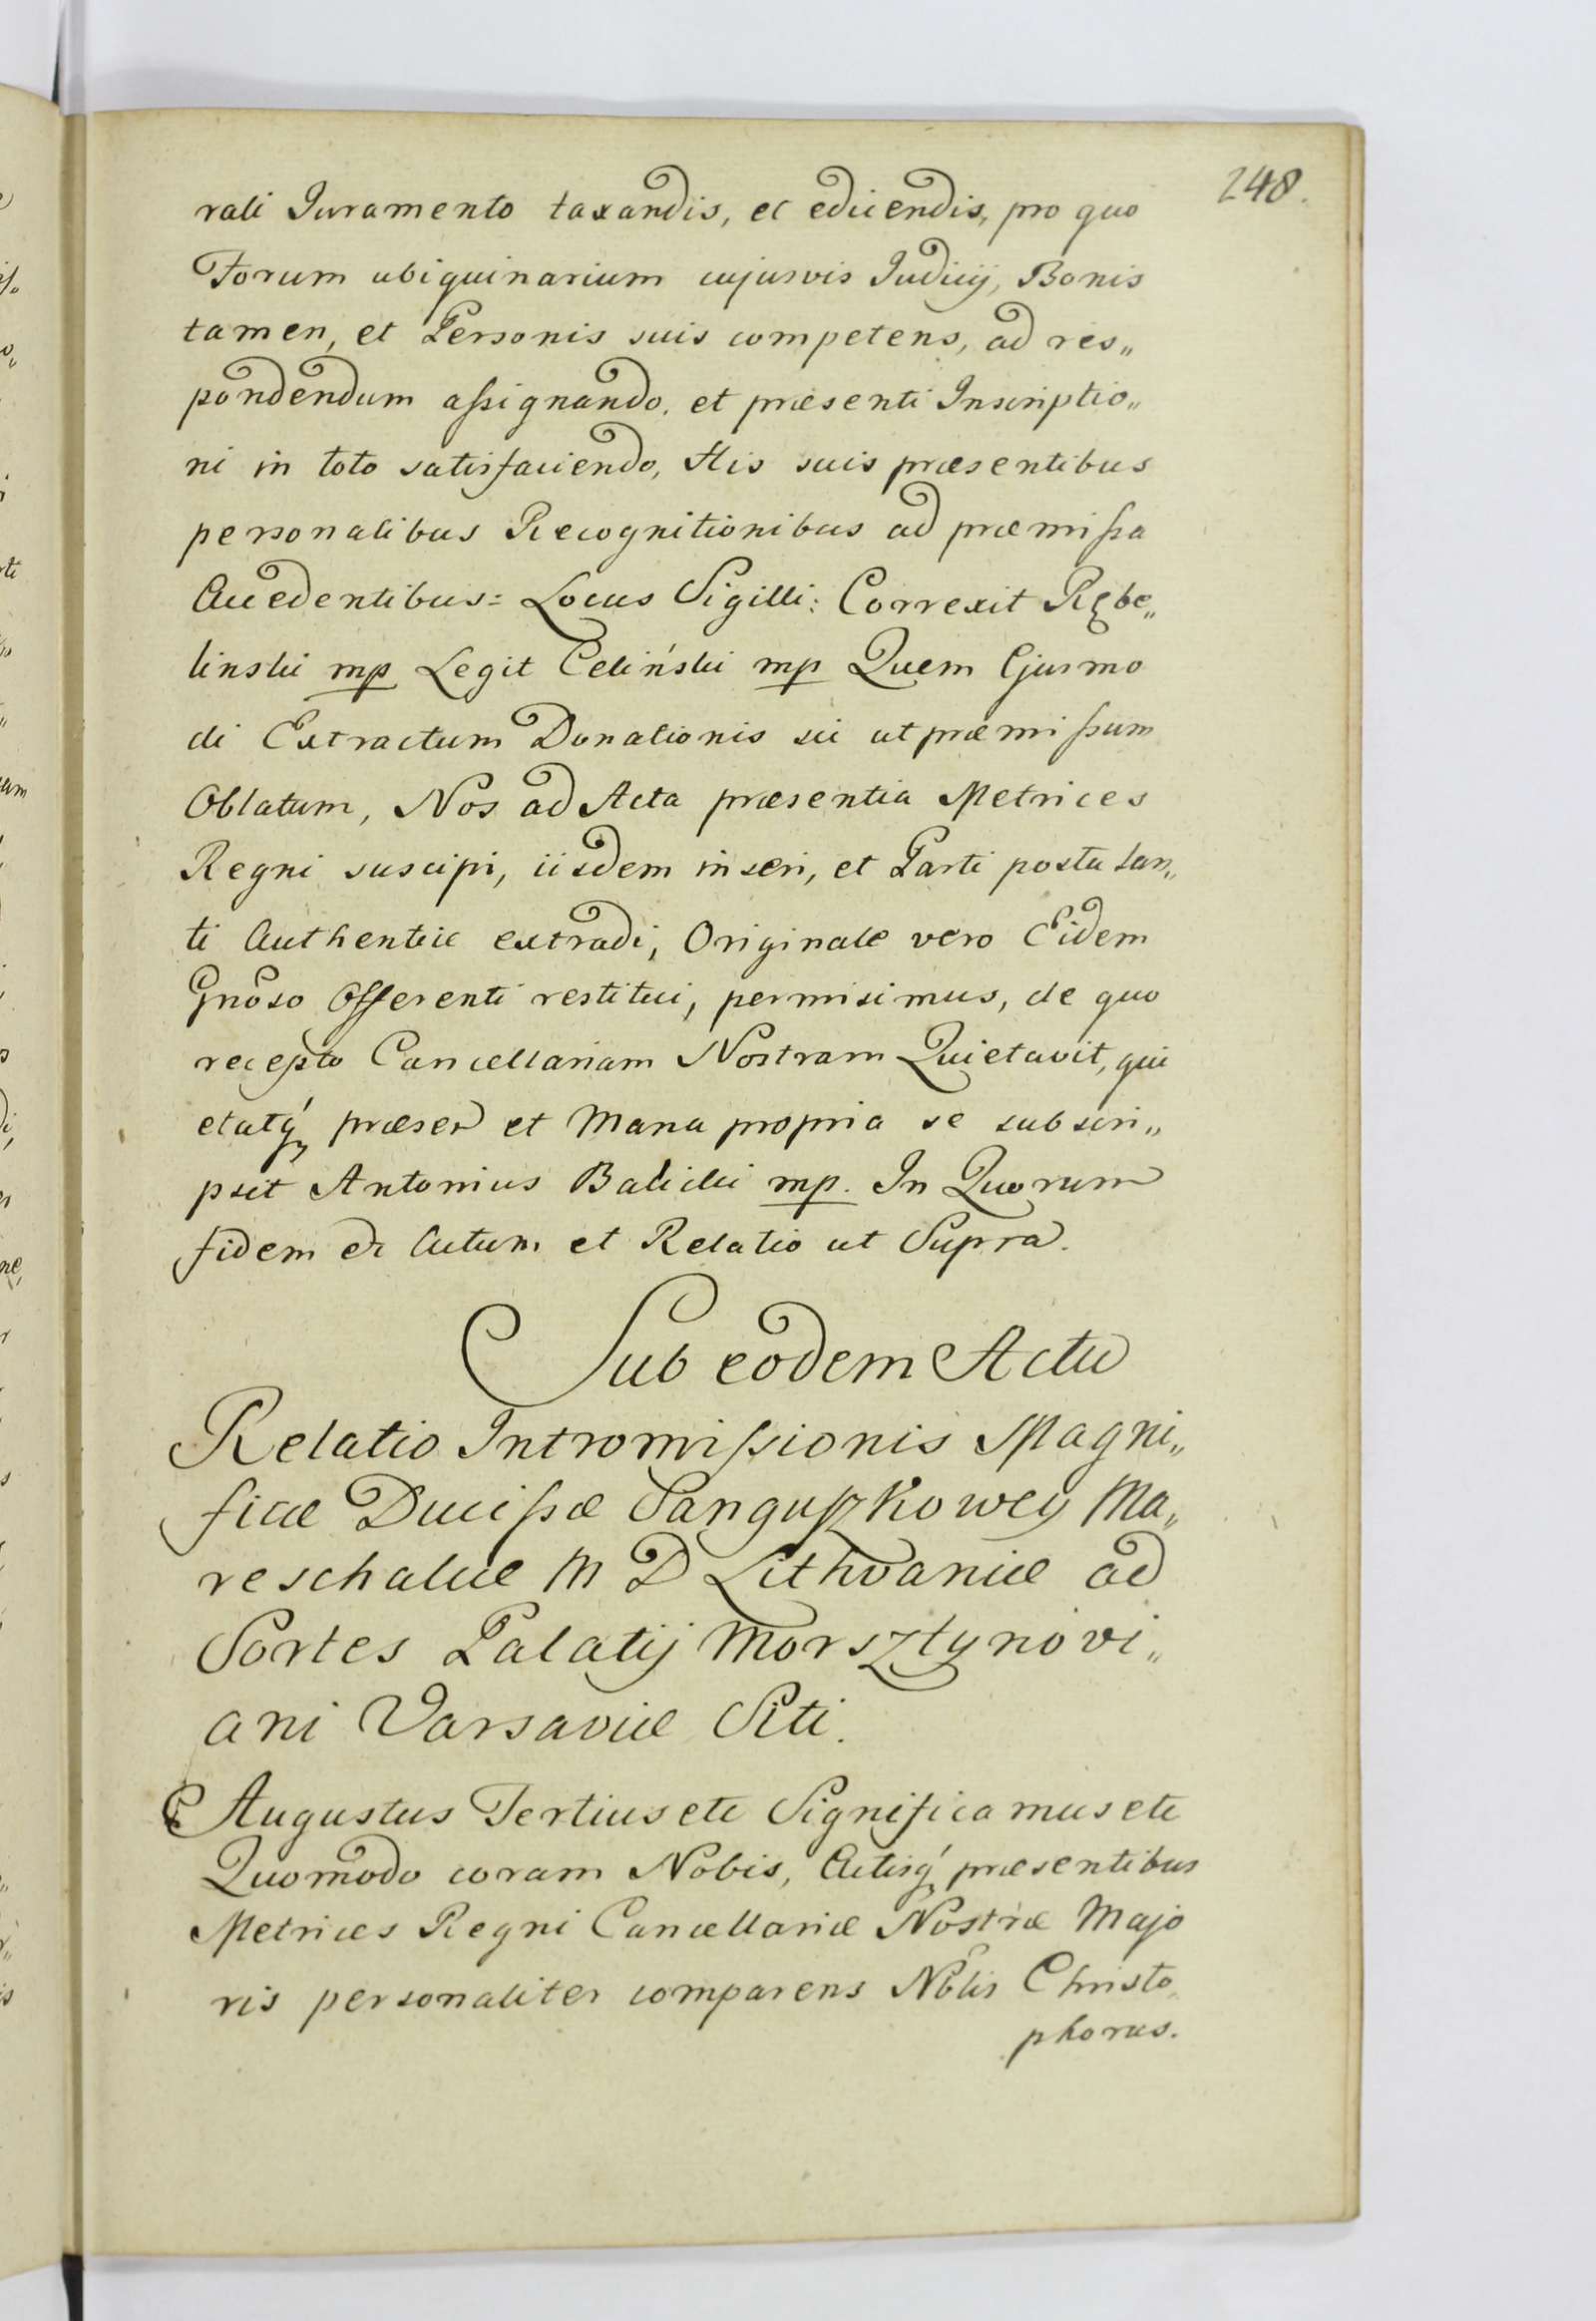 248.
rali Juramento taxandis, et edicendis, pro quo
Forum ubiquinarium cujusvis Judicij, Bonis
tamen, et Personis suis competens, ad res„
pondendum aſsignando, et præsenti Inscriptio„
ni in toto satisfaciendo, His suis præsentibus
personalibus Recognitionibus ad præmiſsa
Accedentibus: Locus Sigilli: Correxit Rębe„
linski mp Legit Celiński mp Quem Ejusmo
di Extractum Donationis sic ut præmiſsum
Oblatum, Nos ad Acta præsentia Metrices
Regni suscipi, iisdem inseri, et Parti postulan„
ti Authentice extradi, Originale vero Eidem
Gnoso Offerenti restitui, permisimus, de quo
recepto Cancellariam Nostram Quietavit, qui
etatq́ præsen et Manu propria se subscri„
psit Antonius Balicki mp. In Quorum
fidem et Actum et Relatio ut Supra.
Sub eodem Actu
Relatio Intromiſsionis Magni„
ficæ Duciſsæ Sanguſzkowey Ma„
reschalcæ M D Lithvaniæ ad
Sortes Palatij Morsztynovi„
ani Varsaviæ Siti.
Augustus Tertius etc Significamus etc
Quomodo coram Nobis, Actisq́ præsentibus
Metrices Regni Cancellariæ Nostræ Majo
ris personaliter comparens Nblis Christo„
phorus.